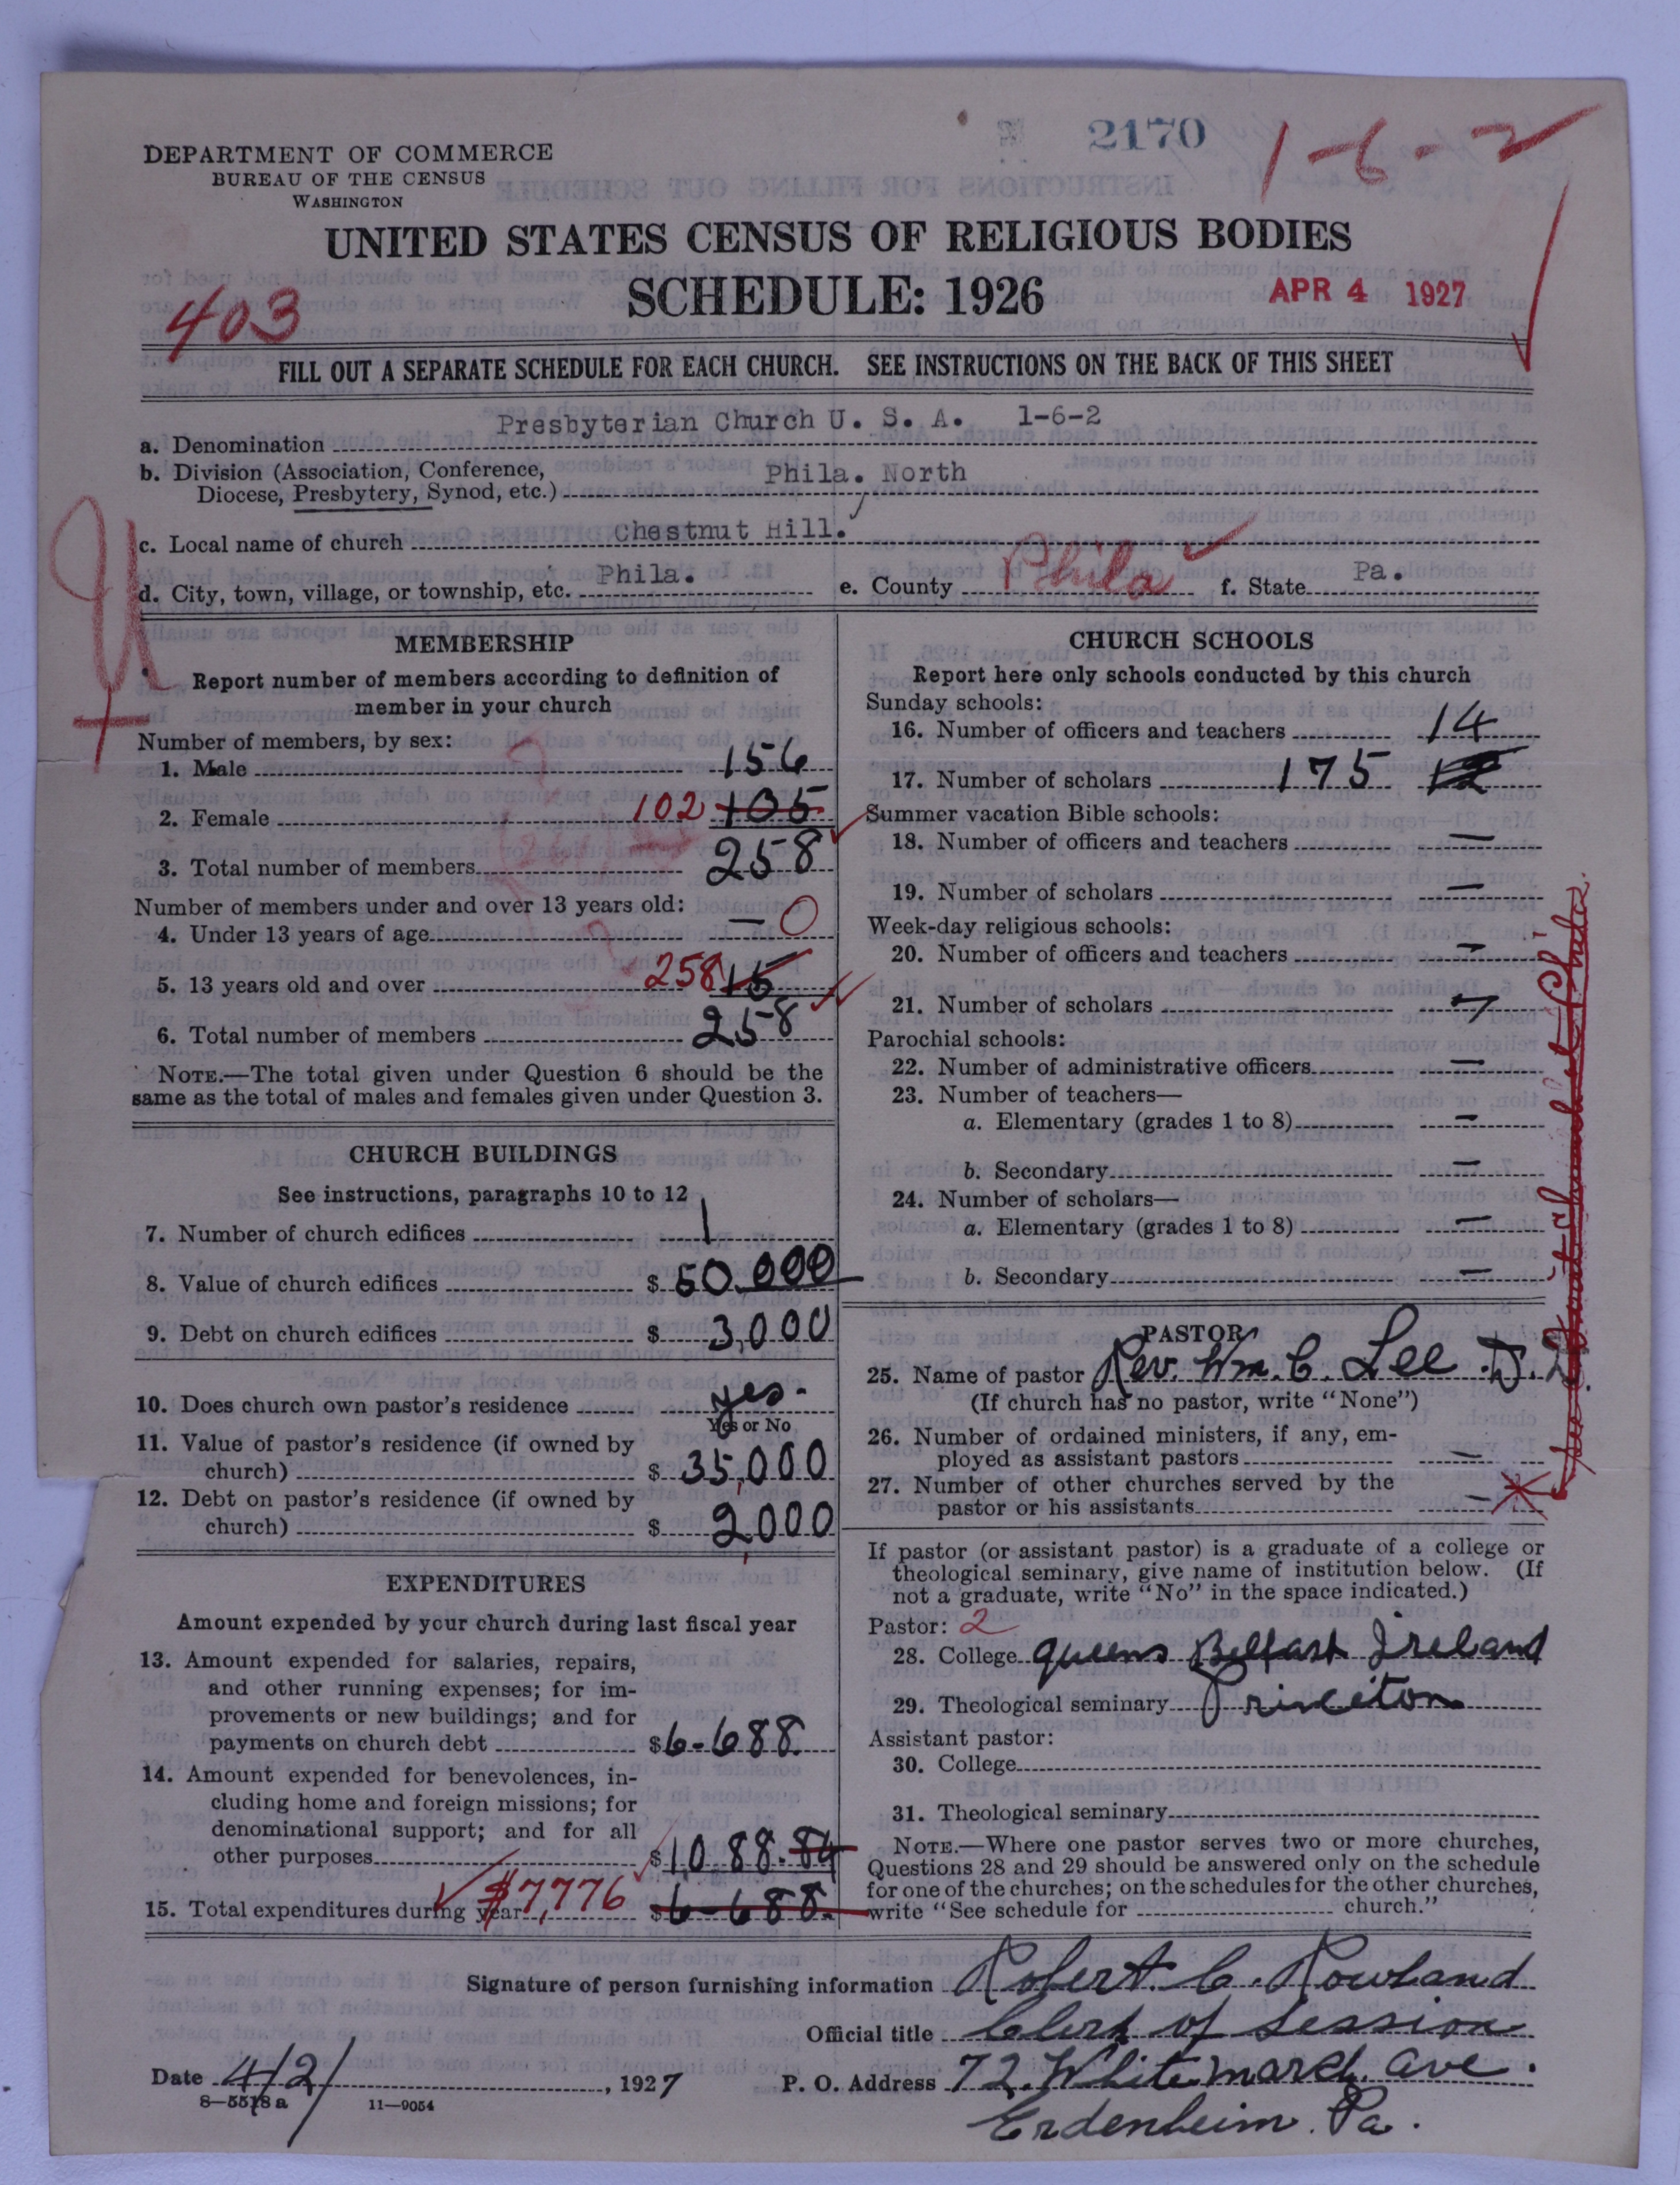 2170
1-6-2
DEPARTMENT OF COMMERCE
BUREAU OF THE CENSUS
WASHINGTON
UNITED STATES CENSUS OF RELIGIOUS BODIES
SCHEDULE: 1926
APR 4 1927
403
FILL OUT A SEPARATE SCHEDULE FOR EACH CHURCH. SEE INSTRUCTIONS ON THE BACK OF THIS SHEET
a. Denomination Presbyterian Church U. S. A. 1-6-2
b. Division (Association, Conference,
Diocese, Presbytery, Synod, etc.) Phila. North
c. Local name of church Chestnut Hill.
d. City, town, village, or township, etc. Phila. e. County Phila f. State Pa.
U
MEMBERSHIP
Report number of members according to definition of
member in your church
Number of members, by sex:
1. Male 156
2. Female 102 105
3. Total number of members 258
Number of members under and over 13 years old:
4. Under 13 years of age — 0
5. 13 years old and over 258 15
6. Total number of members 258
NOTE.—The total given under Question 6 should be the
same as the total of males and females given under Question 3.
CHURCH BUILDINGS
See instructions, paragraphs 10 to 12
7. Number of church edifices 1
8. Value of church edifices $ 50,000
9. Debt on church edifices $ 3,000
10. Does church own pastor's residence yes.
Yes or No
11. Value of pastor's residence (if owned by
church) $ 35,000
12. Debt on pastor's residence (if owned by
church) $ 2,000
EXPENDITURES
Amount expended by your church during last fiscal year
13. Amount expended for salaries, repairs,
and other running expenses; for im-
provements or new buildings; and for
payments on church debt $ 6-688.
14. Amount expended for benevolences, in-
cluding home and foreign missions; for
denominational support; and for all
other purposes $ 1088.84
15. Total expenditures during year $7,776 $ 6-688.
CHURCH SCHOOLS
Report here only schools conducted by this church
Sunday schools:
16. Number of officers and teachers 14
17. Number of scholars 175
Summer vacation Bible schools:
18. Number of officers and teachers —
19. Number of scholars —
Week-day religious schools:
20. Number of officers and teachers —
21. Number of scholars —
Parochial schools:
22. Number of administrative officers —
23. Number of teachers—
a. Elementary (grades 1 to 8) —
b. Secondary —
24. Number of scholars—
a. Elementary (grades 1 to 8) —
b. Secondary —
PASTOR
25. Name of pastor Rev. Wm. C. Lee D.D.
(If church has no pastor, write "None")
26. Number of ordained ministers, if any, em-
ployed as assistant pastors —
27. Number of other churches served by the
pastor or his assistants —
If pastor (or assistant pastor) is a graduate of a college or
theological seminary, give name of institution below. (If
not a graduate, write "No" in the space indicated.)
Pastor: 2
28. College queens Belfast Ireland
29. Theological seminary Princeton
Assistant pastor:
30. College
31. Theological seminary
NOTE.—Where one pastor serves two or more churches,
Questions 28 and 29 should be answered only on the schedule
for one of the churches; on the schedules for the other churches,
write "See schedule for church."
Signature of person furnishing information Robert C. Rowland
Official title Clerk of Session
Date 4/2/, 1927 P. O. Address 72 Whitemarsh ave.
Erdenheim. Pa.
8—5518 a 11—9054